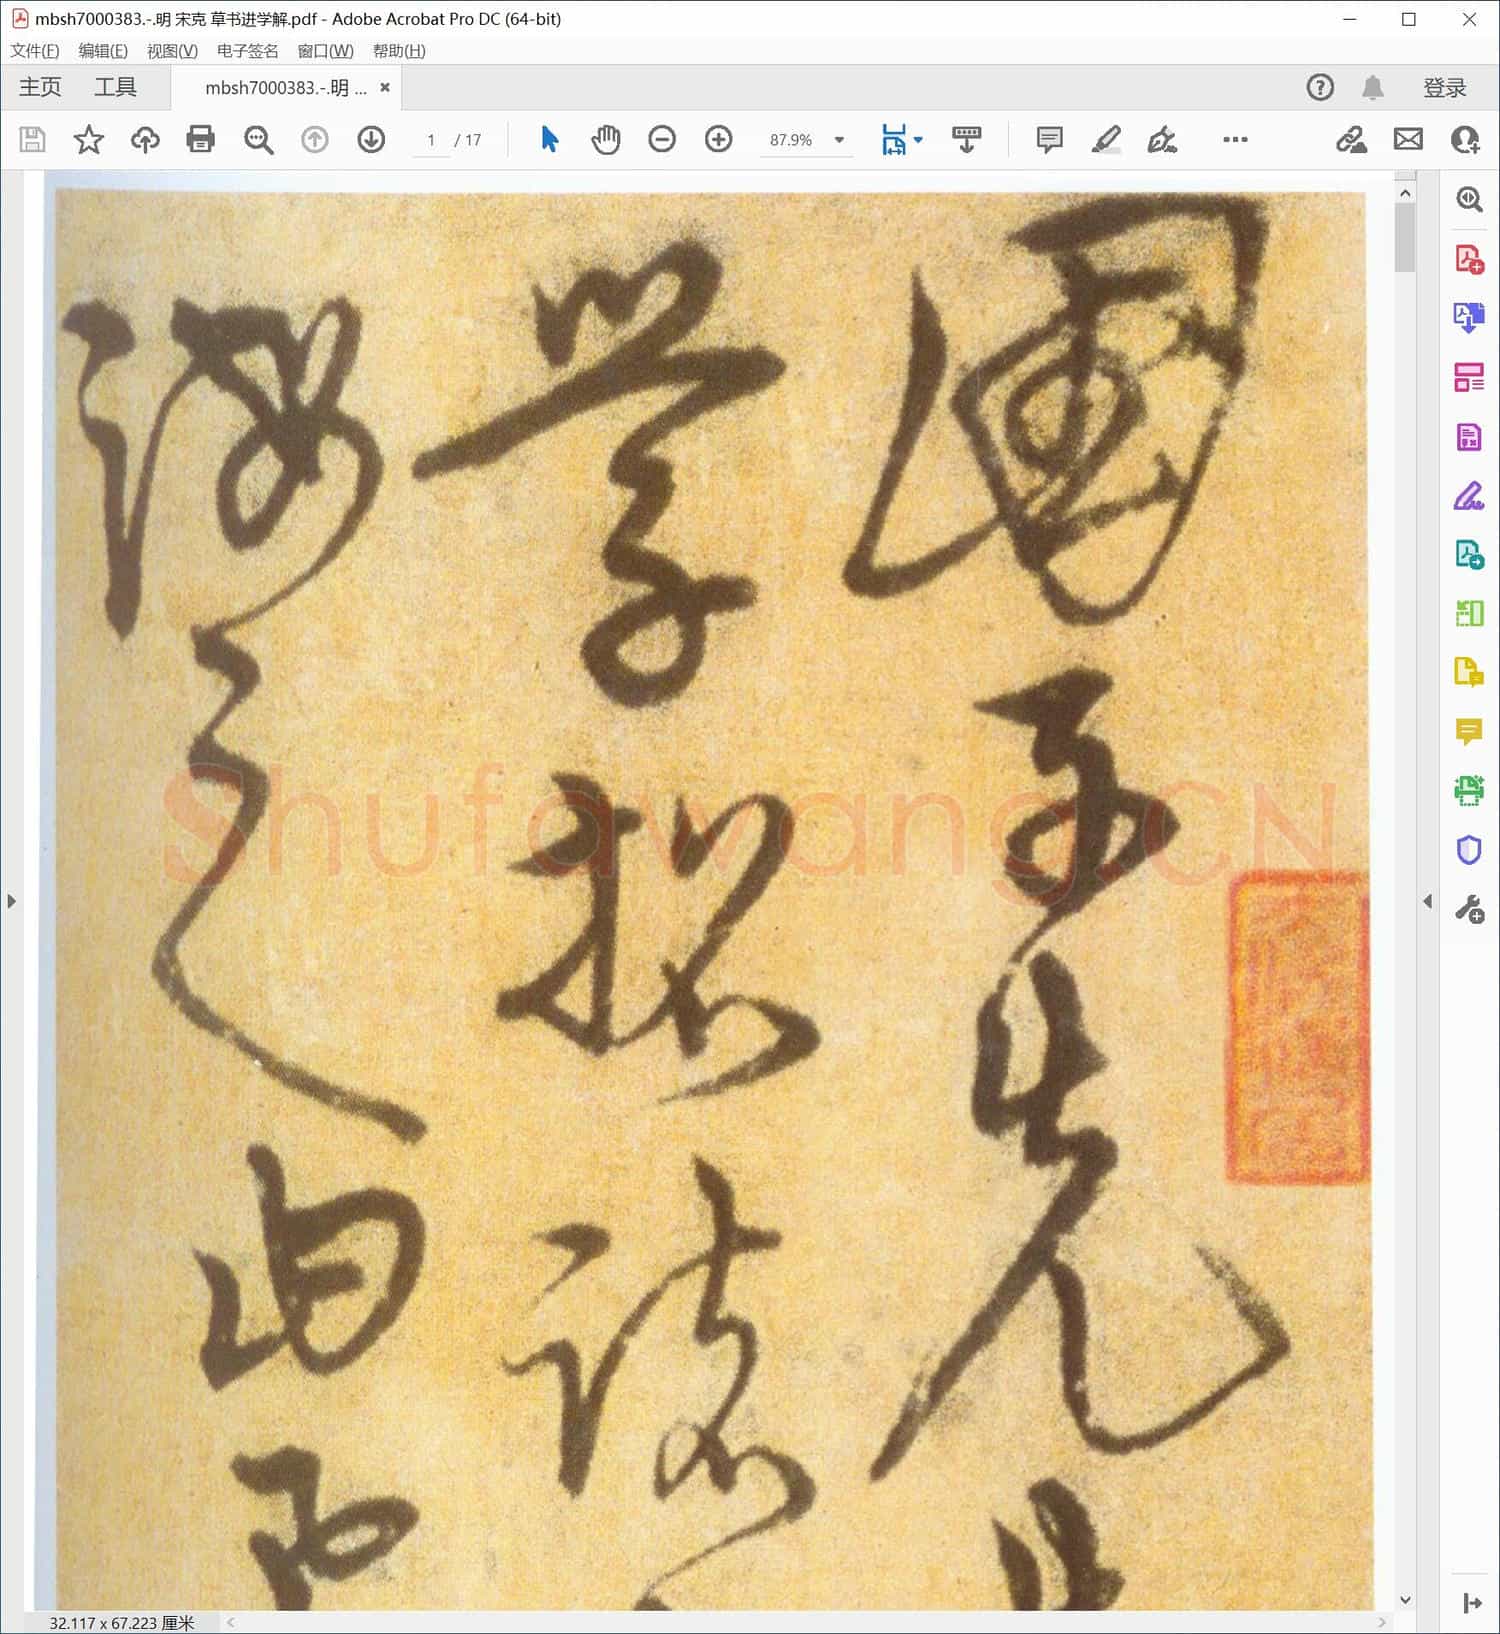 mbsh7000383.-.明 宋克 草书进学解.pdf - Adobe Acrobat Pro DC (64-bit)
文件(F) 编辑(E) 视图(V) 电子签名 窗口(W) 帮助(H)
主页 工具 mbsh7000383.-.明 ... × 登录
1 / 17 87.9%
国子先生
学招诸
诲之曰
Shufawang.CN
32.117 x 67.223 厘米